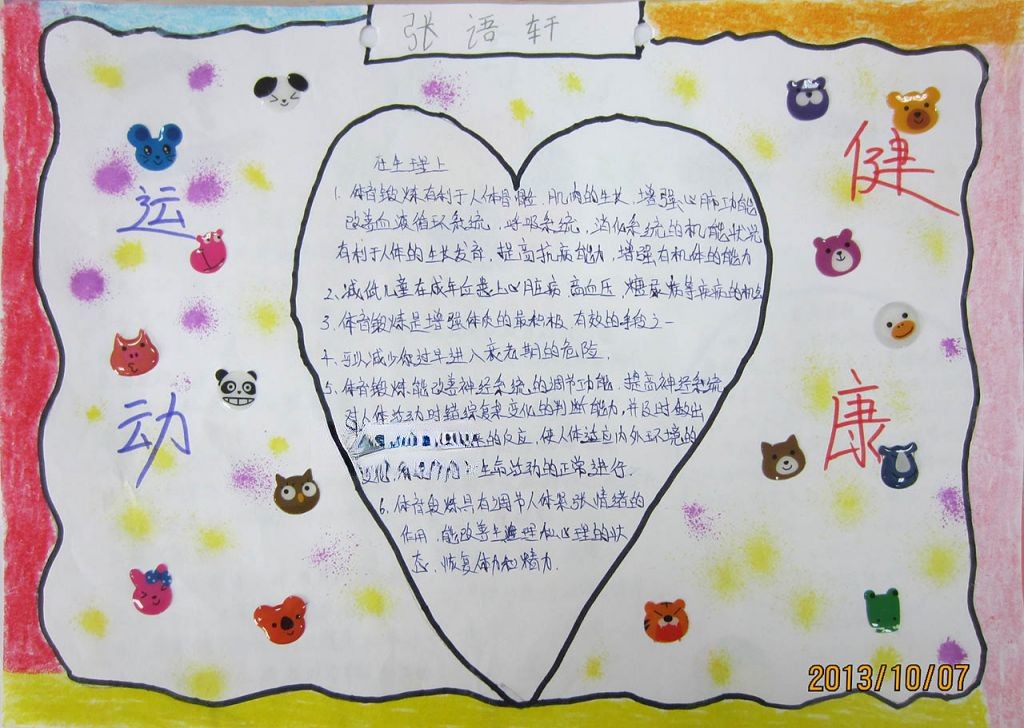 张语轩
运动
健康
在生理上
1、体育锻炼有利于人体骨骼、肌肉的生长,增强心肺功能
改善血液循环系统、呼吸系统、消化系统的机能状况
有利于人体的生长发育,提高抗病能力,增强有机体的能力
2、减低儿童在成年后患上心脏病,高血压,糖尿病等疾病的机会
3、体育锻炼是增强体质的最积极、有效的手段之一
4、可以减少你过早进入衰老期的危险.
5、体育锻炼,能改善神经系统的调节功能,提高神经系统
对人体活动时错综复杂变化的判断能力,并及时做出
的反应,使人体适应内外环境的
生命活动的正常进行.
6、体育锻炼具有调节人体紧张情绪的
作用,能改善生理和心理的状
态、恢复体力和精力.
2013/10/07